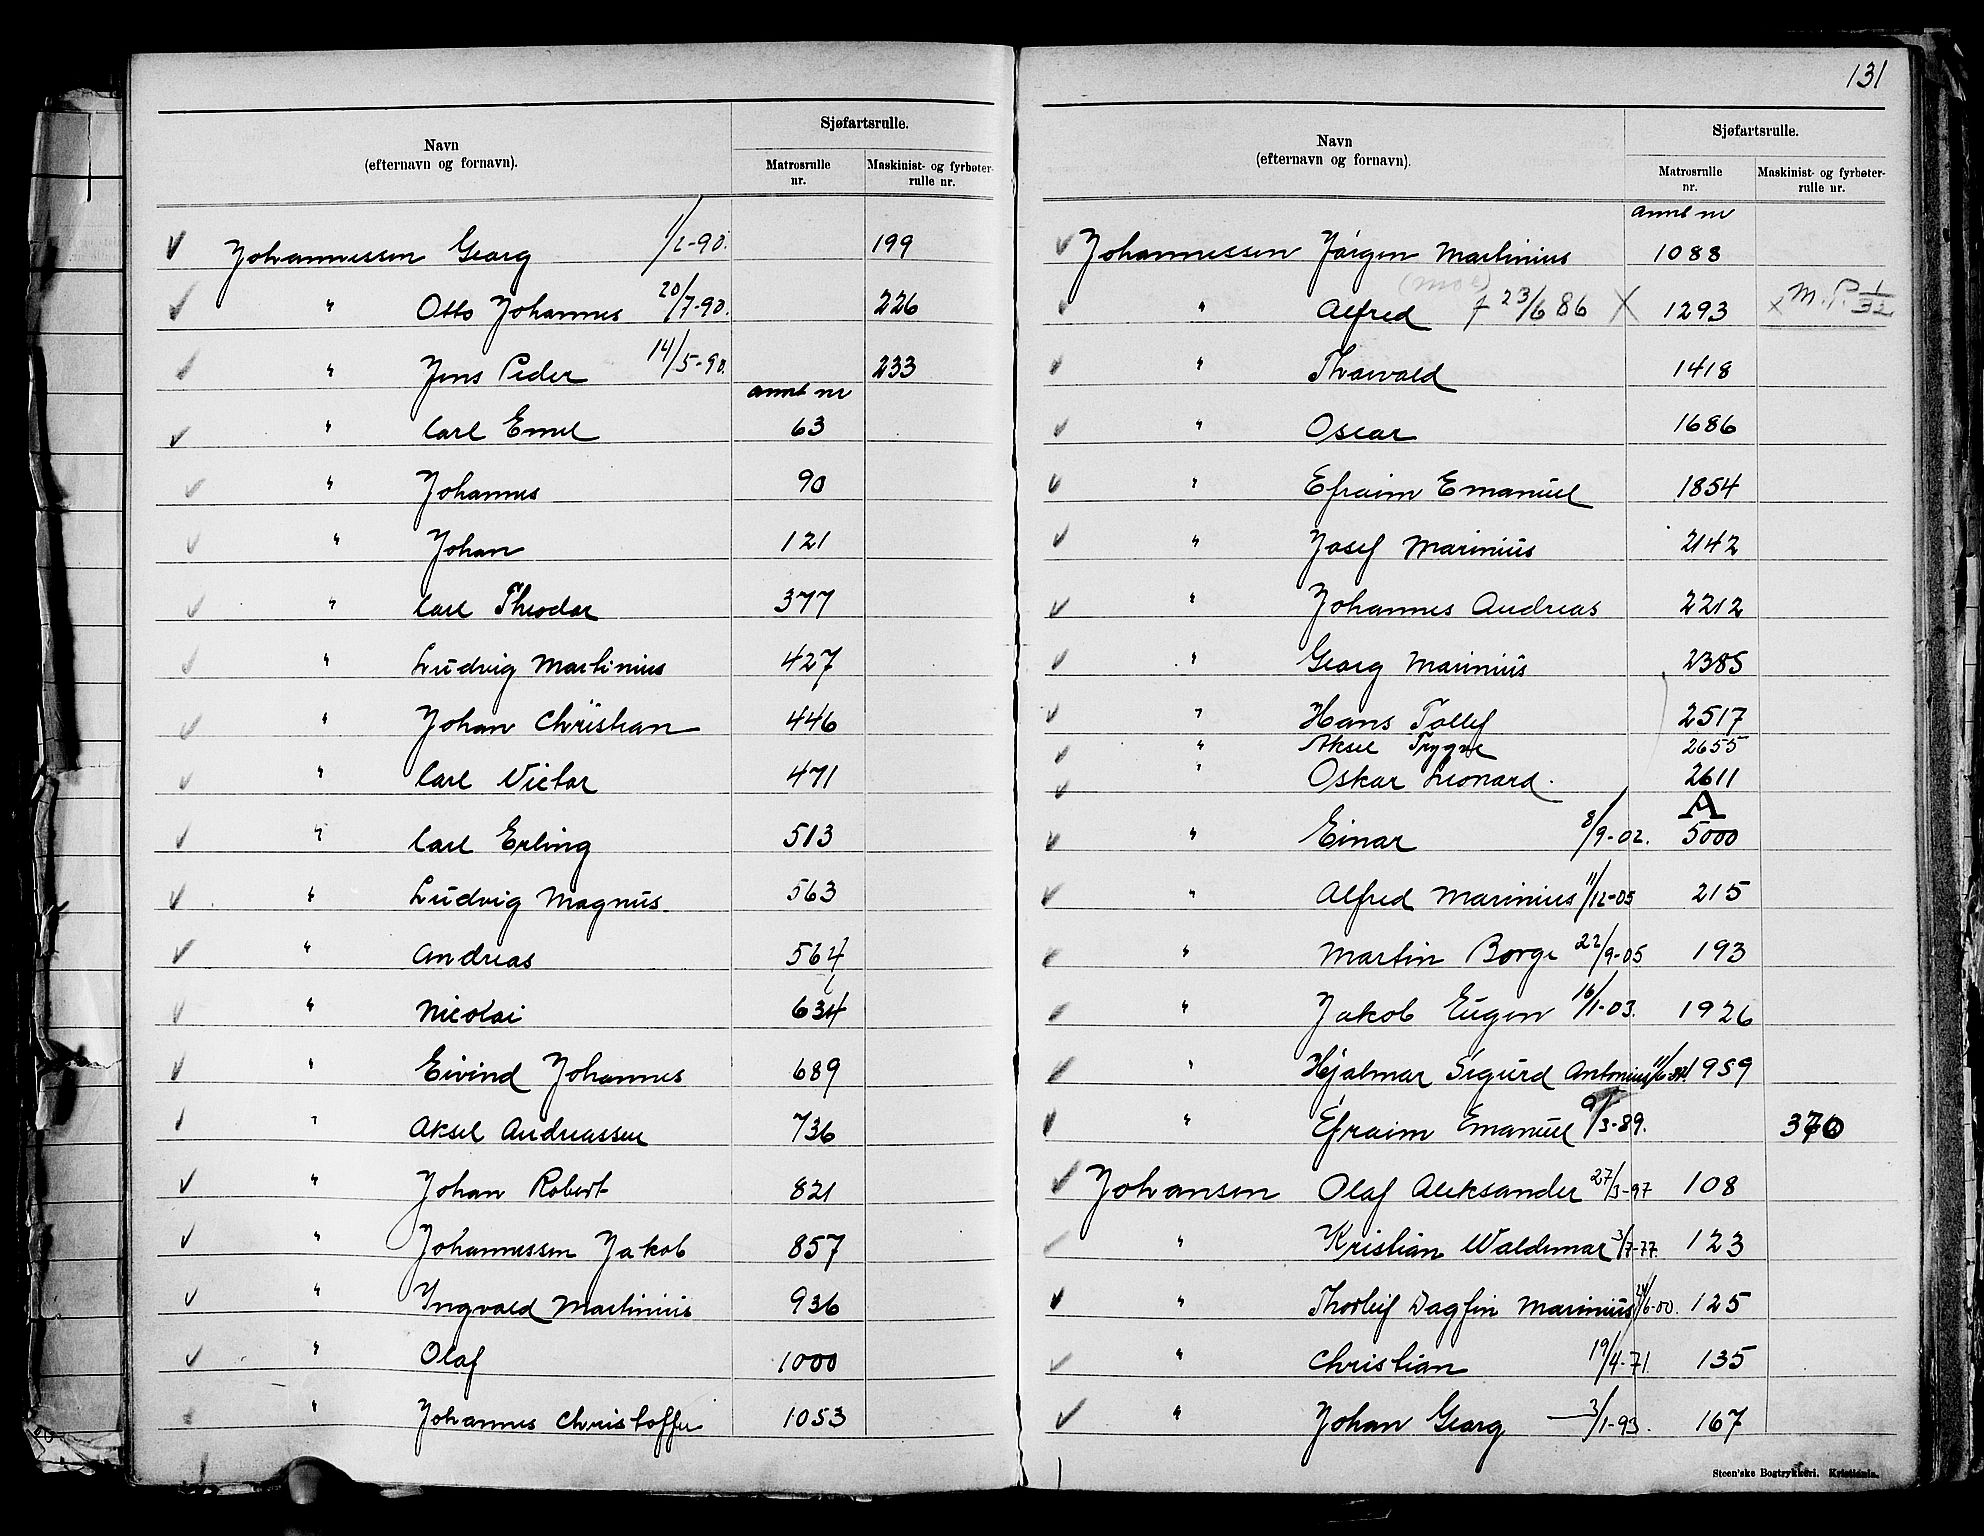 Navn
(efternavn og fornavn).
Sjøfartsrulle.
Matrosrulle
nr.
Maskinist- og fyrbøter-
rulle nr.
Johannessen Georg 1/2-90. 199
" Otto Johannes 20/7-90. 226
" Jens Peder 14/5-90. 233
annt nr
" Carl Emil 63
" Johannes 90
" Johan 121
" Carl Theodor 377
" Ludvig Martinius 427
" Johan Christian 446
" Carl Victor 471
" Carl Erling 513
" Ludvig Magnus. 563
" Andreas 564
" Nicolai 634
" Eivind Johannes 689
" Aksel Andreassen 736
" Johan Robert 821
" Johannessen Jakob 857
" Ingvald Martinius 936
" Olaf 1000
" Johannes Christoffer 1053
131
Navn
(efternavn og fornavn).
Sjøfartsrulle.
Matrosrulle
nr.
Maskinist- og fyrbøter-
rulle nr.
annt nr
Johannessen Jørgen Martinius 1088
" Alfred f 23/6 86 X 1293 x M.P. 1/32
" Thorvald 1418
" Oscar 1686
" Efraim Emanuel 1854
" Josef Marinius 2142
" Johannes Andreas 2212
" Georg Marinius 2385
" Hans Tollef 2517
" Aksel Trygve 2655
" Oskar Leonard. 2611
A
" Einar 8/9-02. 5000
" Alfred Marinius 11/12-05 215
" Martin Borge 22/9-05 193
" Jakob Eugen 16/1-03. 1926
" Hjalmar Sigurd Antonius 1959
" Efraim Emanuel 9/3-89. 370
Johansen Olaf Aleksander 27/3-97 108
" Kristian Waldemar 3/7-77. 123
" Thorleif Dagfin Marinius 24/6-00. 125
" Christian 19/4-71. 135
" Johan Georg 3/1-93. 167
Steen'ske Bogtrykkeri. Kristiania.